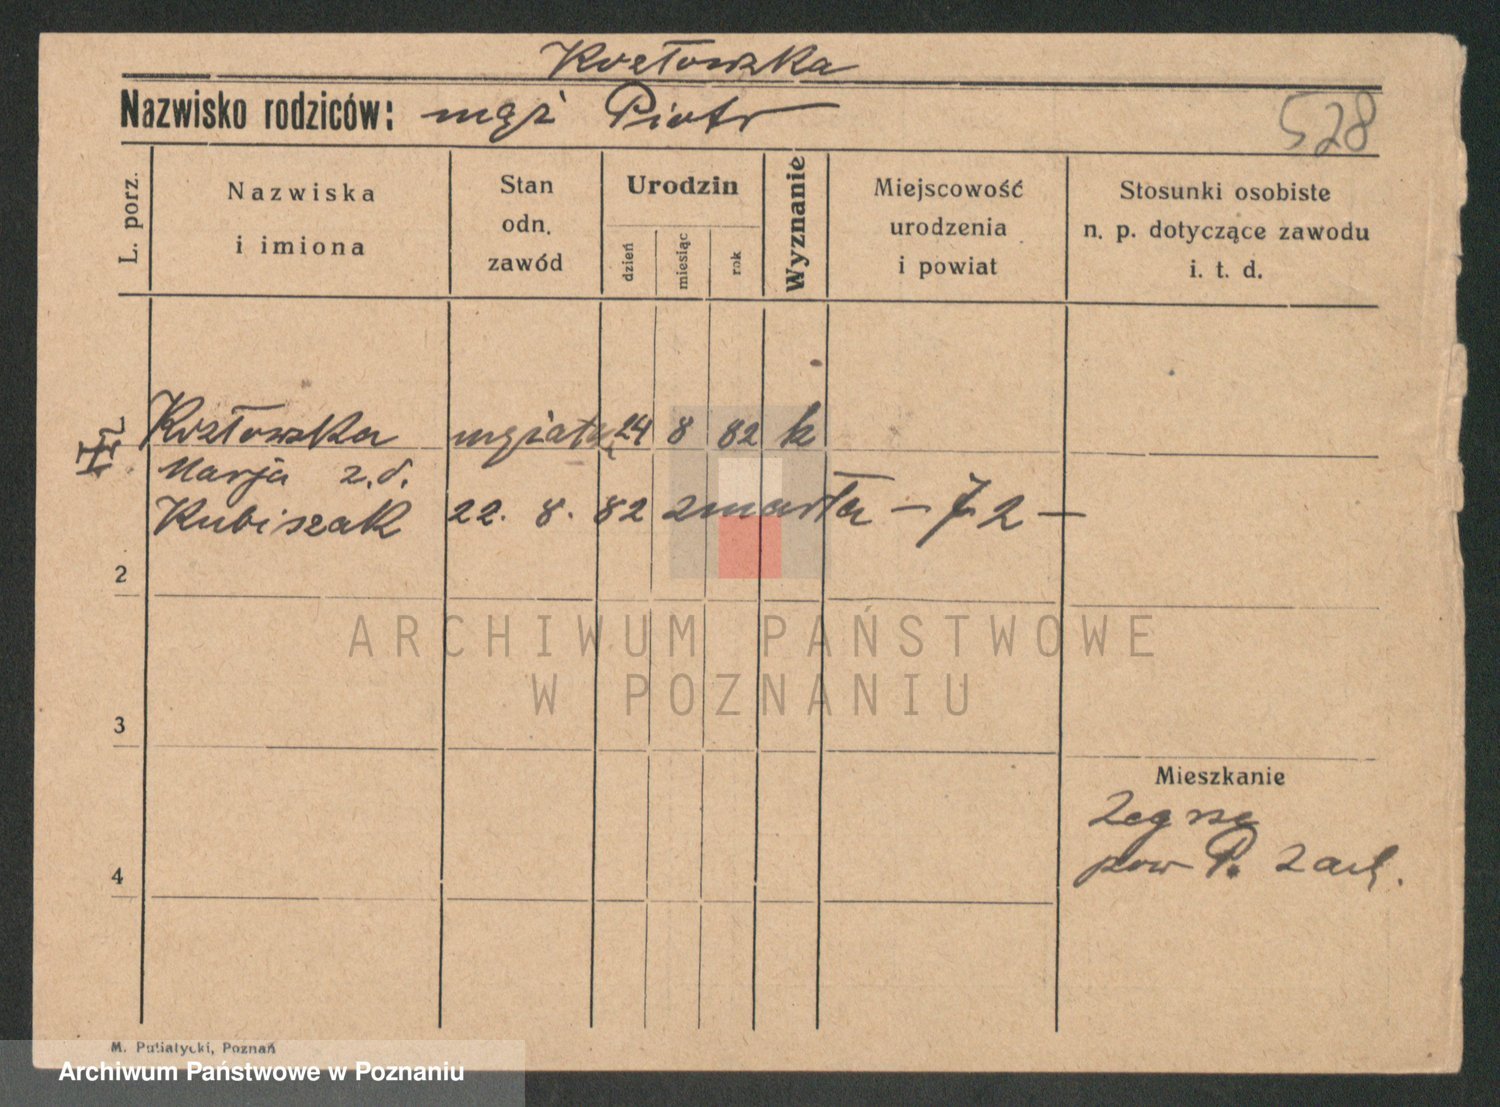 Kozłowska
Nazwisko rodziców: mąż Piotr
528
L. porz.
Nazwiska
i imiona
Stan
odn.
zawód
Urodzin
dzień
miesiąc
rok
Wyznanie
Miejscowość
urodzenia
i powiat
Stosunki osobiste
n. p. dotyczące zawodu
i. t. d.
Kozłowska mężatka 24 8 82 k
Marja z.d.
Kubiszak 22. 8. 82 zmarła – 72 –
2
ARCHIWUM PAŃSTWOWE
W POZNANIU
3
Mieszkanie
Zegrze
pow P. zach.
4
M. Putiatycki, Poznań
Archiwum Państwowe w Poznaniu